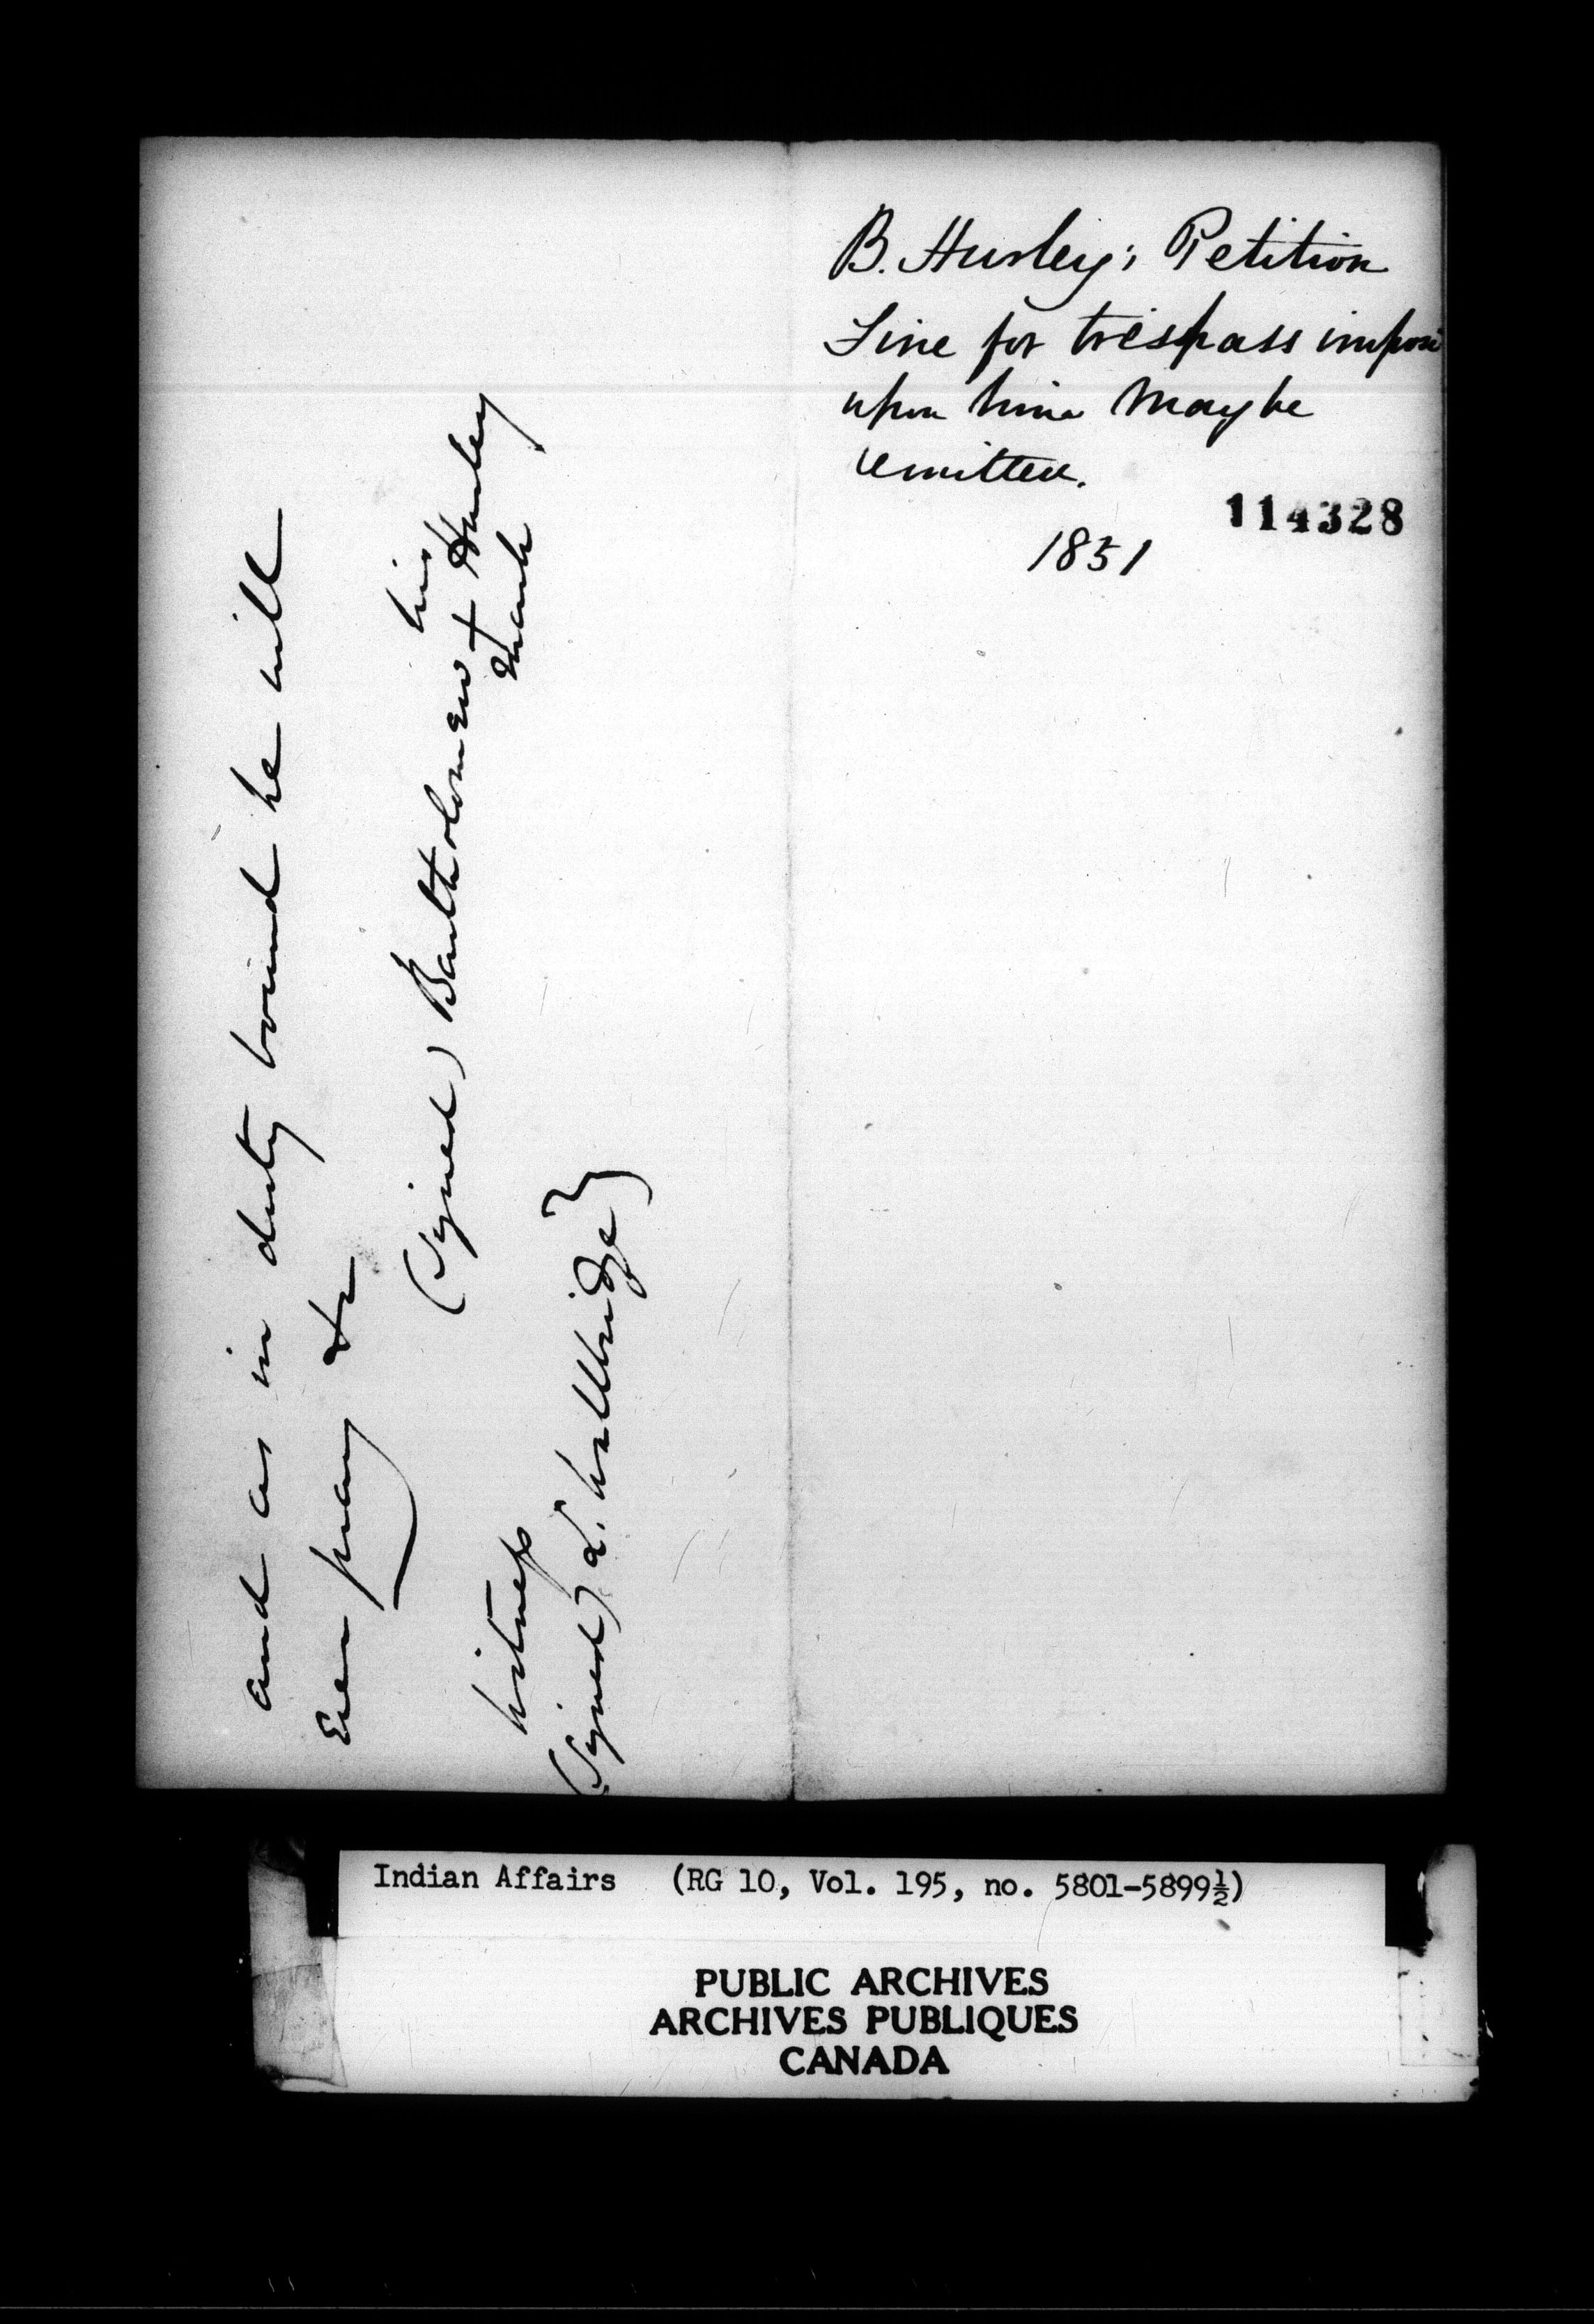 and as in duty bound he will
Ever pray &c
his
(Signed) Bartholomew + Hurley
mark
Witness
(Signed) L. Wallbridge }
B. Hurley's Petition
Fine for trespass impos
upon him may be
remitted.
114328
1851
Indian Affairs (RG 10, Vol. 195, no. 5801-5899½)
PUBLIC ARCHIVES
ARCHIVES PUBLIQUES
CANADA